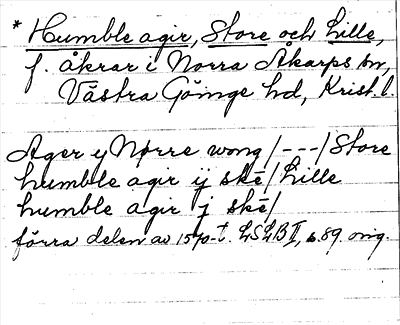 * Humble agir, Store och Lille,
f. åkrar i Norra Åkarps sn,
Västra Göinge hd, Krist. l.
Ager y Nørre wong /---/ Store
humble agir ij skē / Lille
humble agir j skē /
förra delen av 1570-t. LSLB II, s. 89. orig.